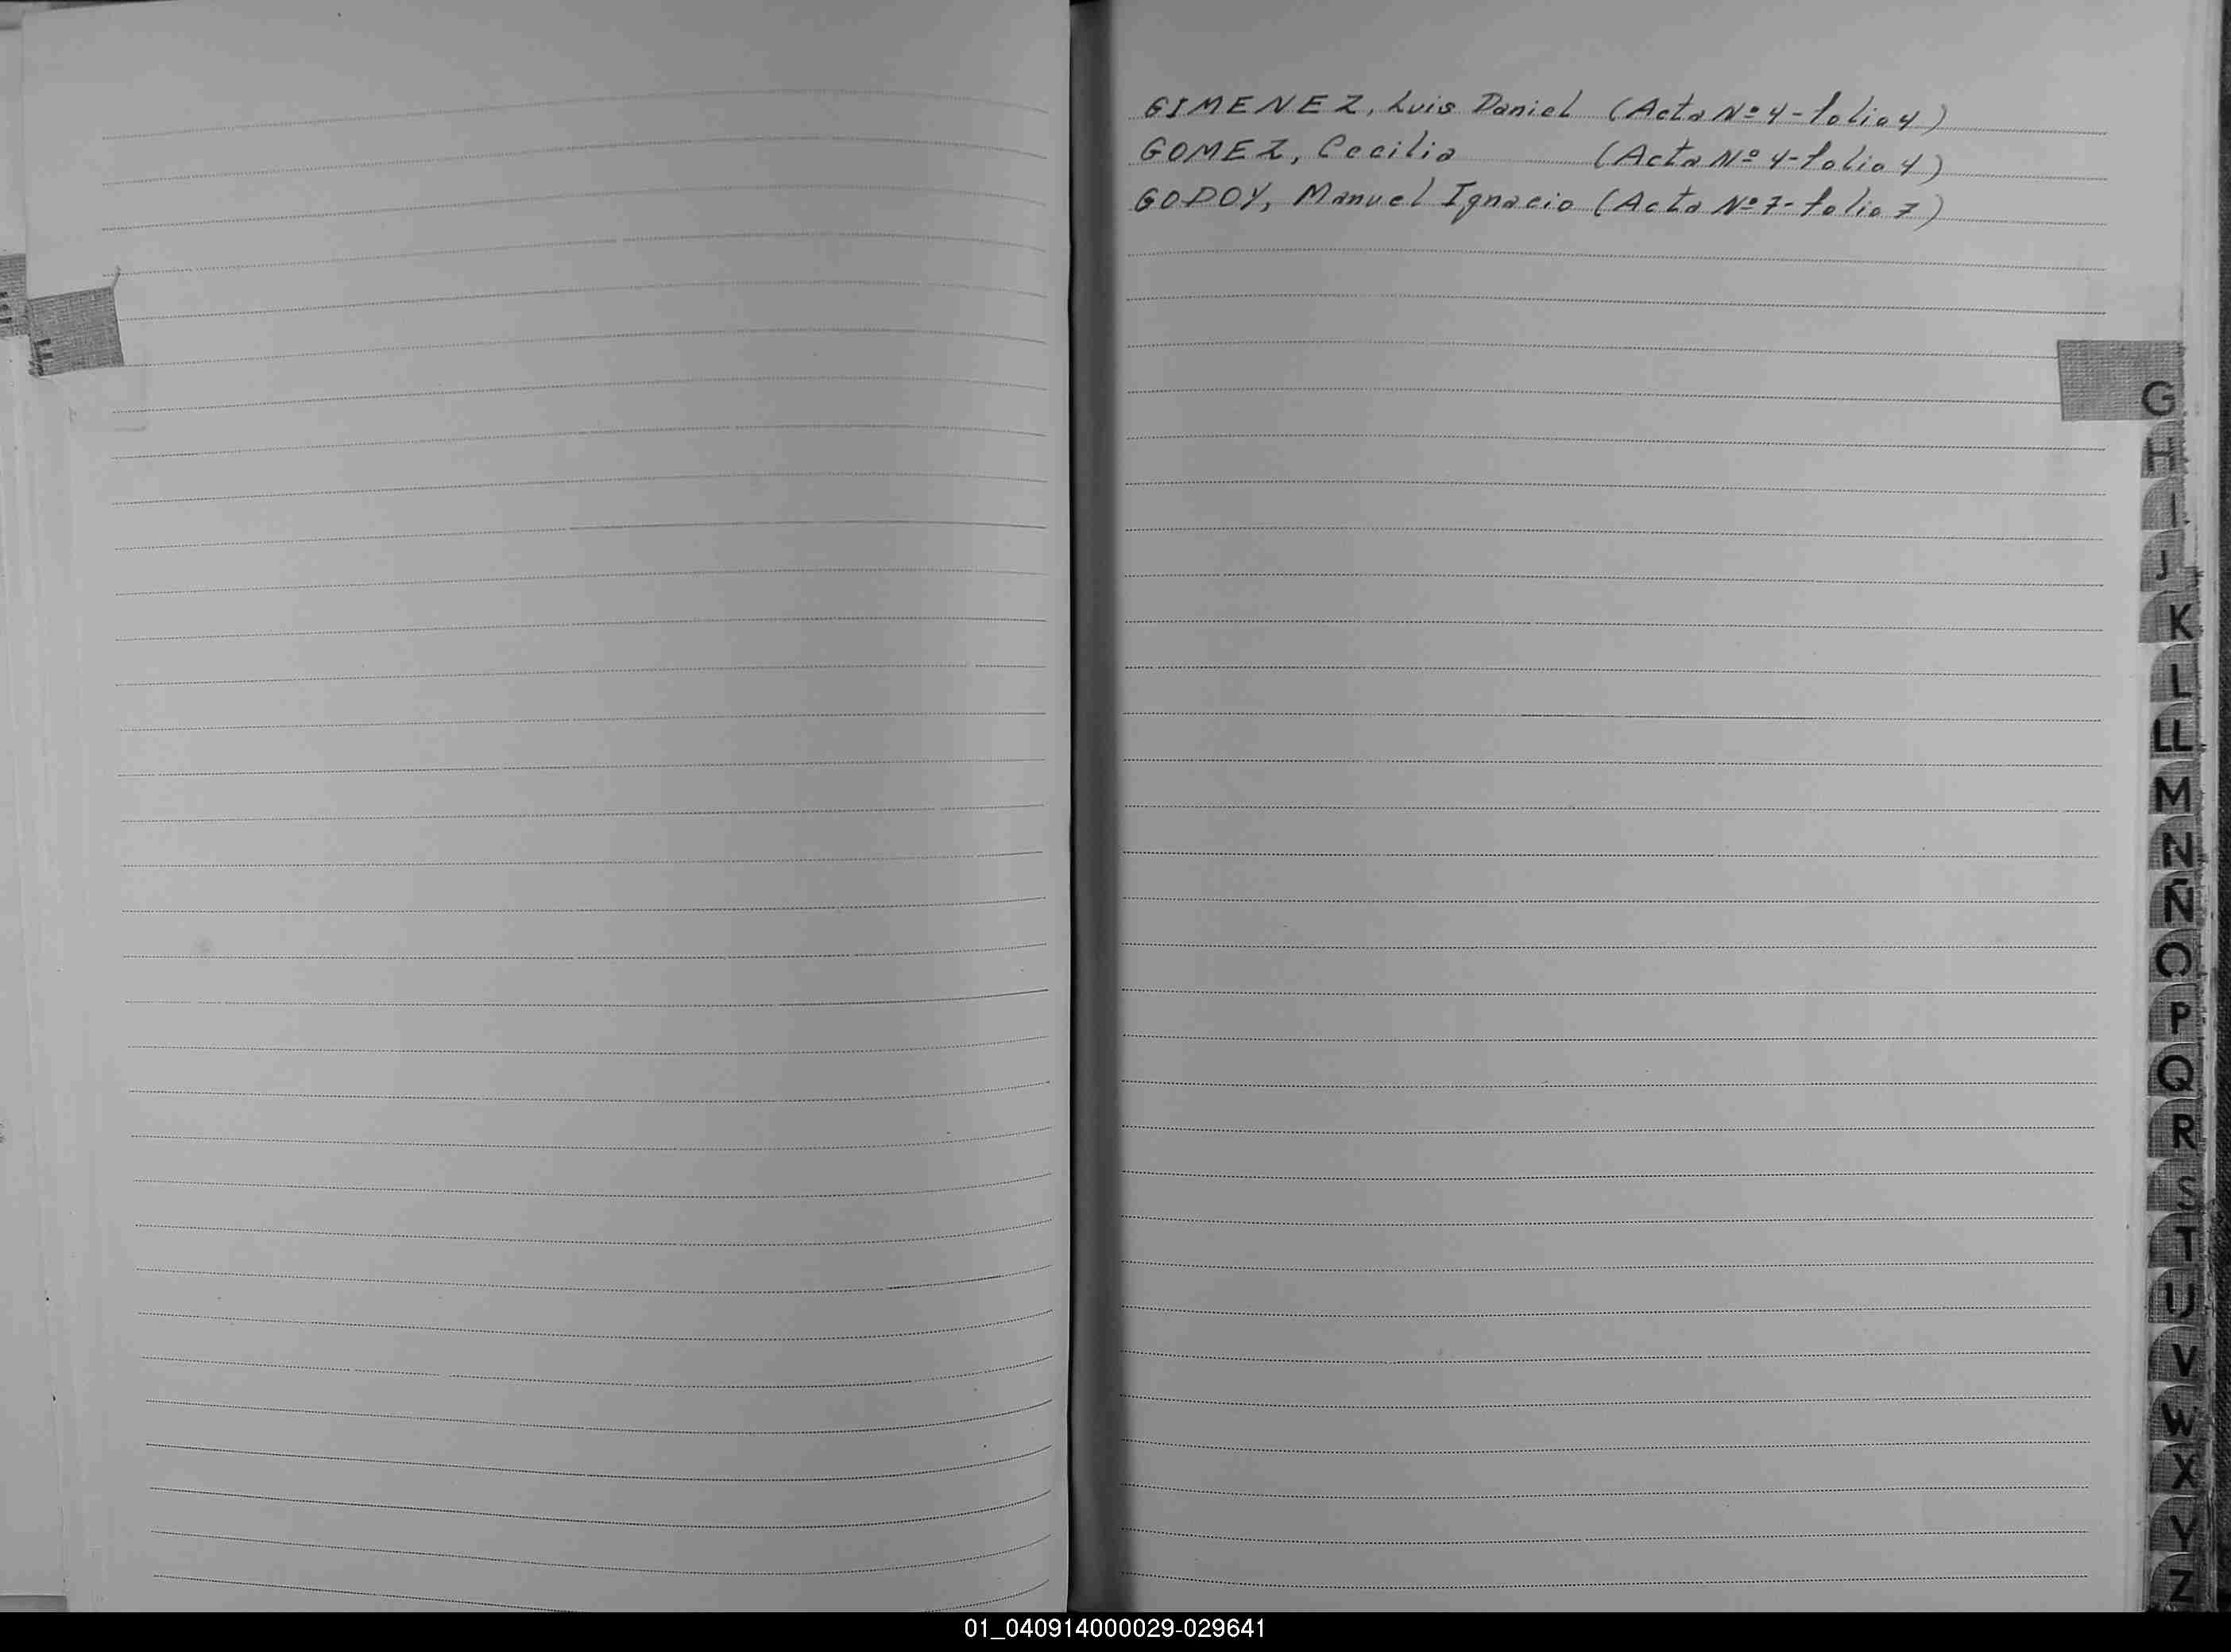 GIMENEZ, Luis Daniel (Acta Nº 4 - folio 4)
GOMEZ, Cecilia (Acta Nº 4 - folio 4)
GODOY, Manuel Ignacio (Acta Nº 7 - folio 7)
F
G
H
I
J
K
L
LL
M
N
Ñ
O
P
Q
R
S
T
U
V
W
X
Y
Z
01_040914000029-029641